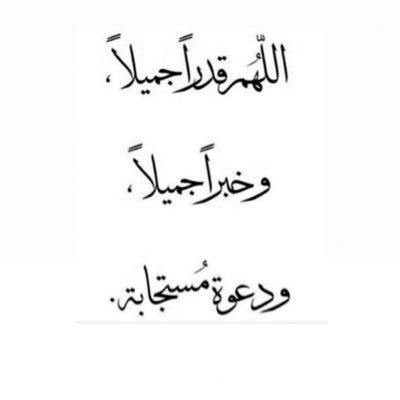 اللّهُم قدراً جميلاً،
وخبراً جميلاً،
ودعوة مُستجابة.